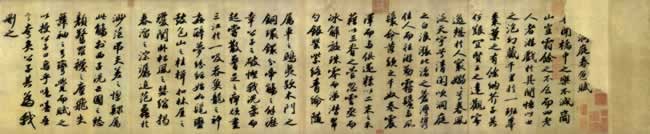 洞庭春色賦
吾聞橘中之樂不減商
山豈霜餘之不食而四老
人者游戲於其間悟此世
之泡幻藏千里於一班舉
棗葉之有餘納芥子其
何艱宜賢王之達觀寄
逸想於人寰嫋嫋兮春風
泛天宇兮清閑吹洞庭
之白浪漲北渚之蒼灣攜
佳人而往游勤霧鬢與風
鬟命黃頭之千奴卷震
澤而與俱還糅以二米之禾
藉以三脊之菅忽雲烝而
冰解旋珠零而涕潸翠
勺銀罌紫絡青倫隨
屬車之鴟夷款木門之
銅鐶分帝觴之餘瀝
幸公子之破慳我洗盞而
起嘗散腰足之痺頑盡
三江於一吸吞魚龍之神奸
醉夢紛紜始如髦蠻
鼓包山之桂楫扣林屋之
瓊關臥松風之瑟縮揭
春溜之淙潺追范蠡於
渺茫弔夫差之惸鰥屬
此觴於西子洗亡國之愁
顏驚羅襪之塵飛失
舞袖之弓彎覺而賦之
以授公子曰烏乎噫嘻吾
言夸矣公子其為我
刪之